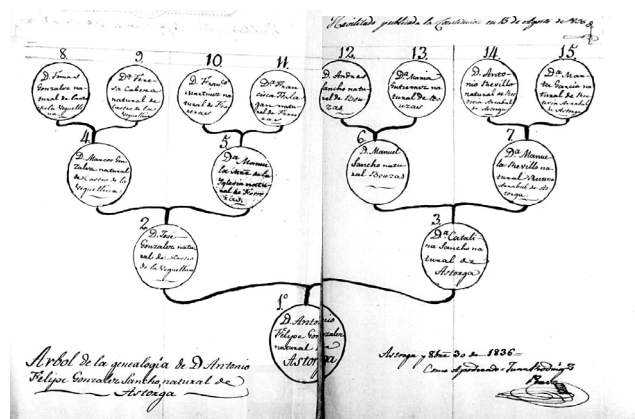 Habilitado publicada la Constitucion en 15 de Agosto de
8.
9.
10.
11.
12.
13.
14.
15.
D. Tomas
Gonzalez na-
tural de
la Vequellina
Dª Tere-
sa Cabeza
natural de
la Vequellina
D. Franco
Martinez na-
tural de
Dª Fran-
cisca
natu-
ral de
D. Andres
Sancho natu-
ral de Bou-
zas
Dª Maria
na-
tural de Bo-
uzas
D. Anto-
nio Revillo
natural de
Arrabal de
Astorga
Dª Ma-
Garcia na-
tural de
Arrabal de
Astorga
4.
5.
6.
7.
D. Marcos Gon-
zalez natural
de Castro de la
Vequellina
Dª Manue-
la de la
Iglesia natu-
ral de
D. Manuel
Sancho natu-
ral Bouzas
Dª. Manue-
la Revillo na-
tural
Arrabal de As-
torga
2.
3.
D. Jose
Gonzalez natu-
ral de Castro
de la Vequellina
Dª Catali-
na Sancho na-
tural de
Astorga
1º
D. Antonio
Felipe Gonzalez
natural de
Astorga
Arbol de la genealogía de D. Antonio
Felipe Gonzalez Sancho, natural de
Astorga
Astorga y 8bre 30 de 1836
Como Apoderado = Juan Rodrig.z